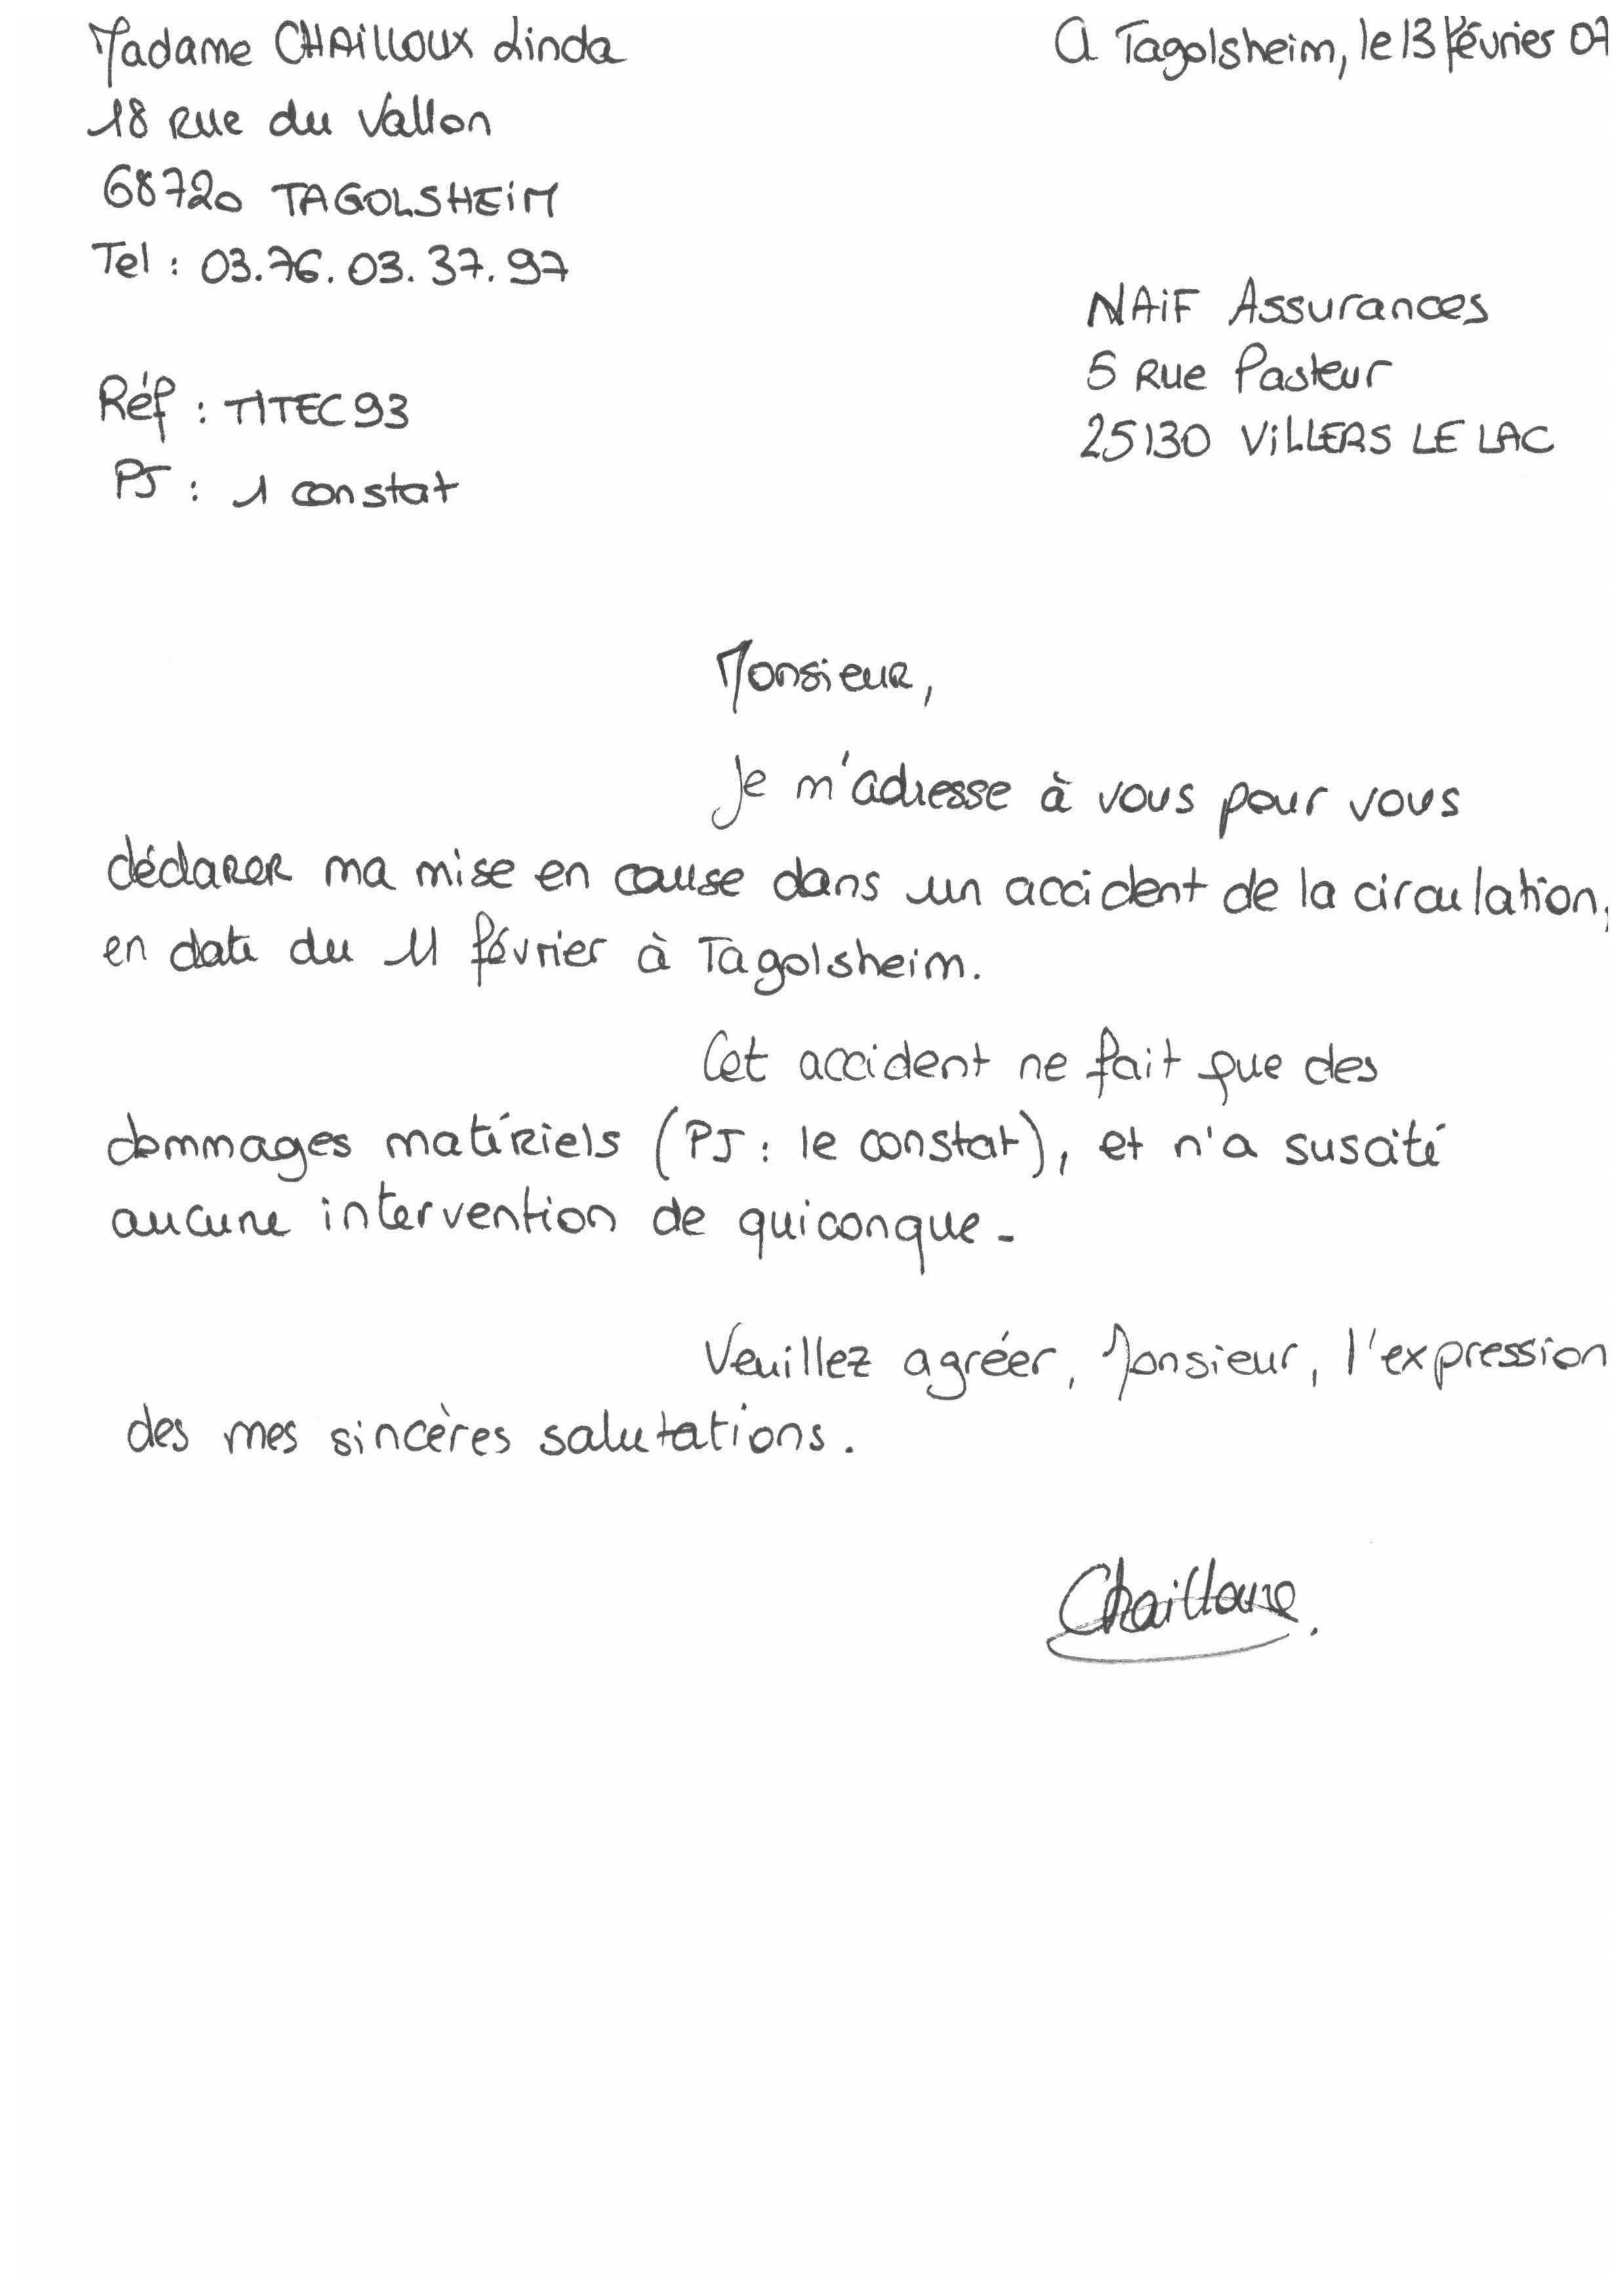 Madame CHAILLOUX Linda
18 Rue du Vallon
68720 TAGOLSHEIM
Tel : 03.76.03.37.97
Réf : TITEC93
PJ : 1 constat
A Tagolsheim, le 13 février 07
NAIF Assurances
5 Rue Pasteur
25130 VILLERS LE LAC
Monsieur,
Je m'adresse à vous pour vous
déclarer ma mise en cause dans un accident de la circulation,
en date du 11 février à Tagolsheim.
Cet accident ne fait que des
dommages matériels (PJ : le constat), et n'a suscité
aucune intervention de quiconque.
Veuillez agréer, Monsieur, l'expression
des mes sincères salutations.
Chailloux.